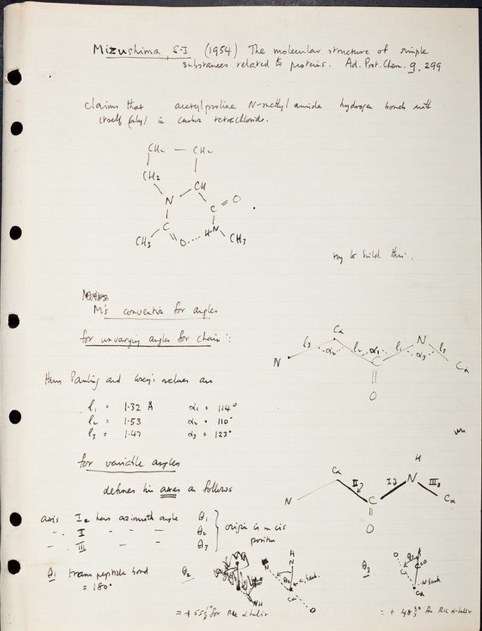 Mizushima, S-I (1954) The molecular structure of simple
substances related to proteins. Ad. Prot. Chem. 9, 299
claims that acetylproline N-methyl amide hydrogen bonds with
itself (only) in carbon tetrachloride.
CH2 — CH2
CH2
CH
N
C = O
C
CH3
O
HN
CH3
try to build this.
M's convention for angles
for unvarying angles for chain:
Cα
N
l3 α2 l2 α1 l1 α3 l3
N
C
Cα
O
Here Pauling and Corey's values are
l1 = 1.32 Å α1 = 114°
l2 = 1.53 α2 = 110°
l3 = 1.47 α3 = 123°
for variable angles
defines his axes as follows
H
Cα
N
II
I
III
N
C
Cα
O
axis I has azimuth angle θ1
" II " " " θ2
" III " " " θ3
origin is in cis
position
θ1 trans peptide bond
= 180°
θ2
θ3